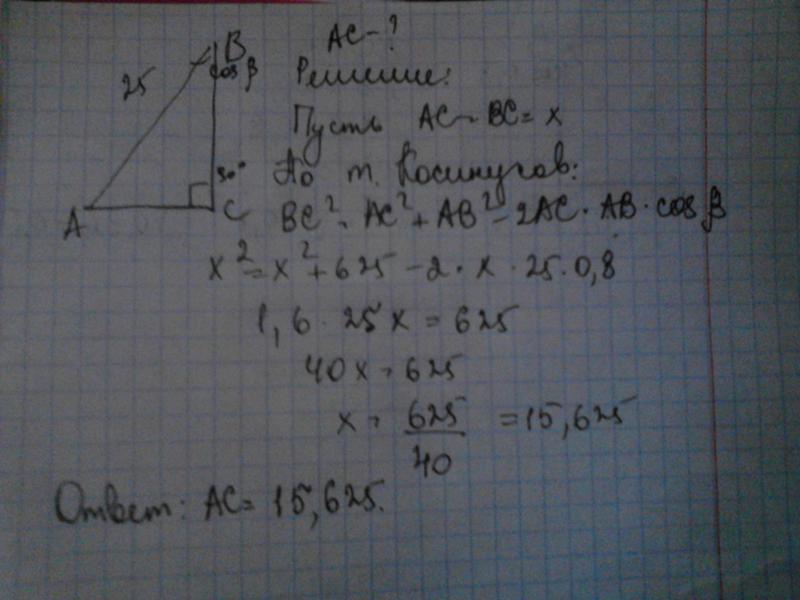 AC - ?
B
25
cos β
Решение:
Пусть AC - BC = x
90°
По т. Косинусов:
A
C
BC² = AC² + AB² - 2AC · AB · cos β
x² = x² + 625 - 2 · x · 25 · 0,8
1,6 · 25x = 625
40x = 625
x = 625/40 = 15,625
Ответ: AC = 15,625.